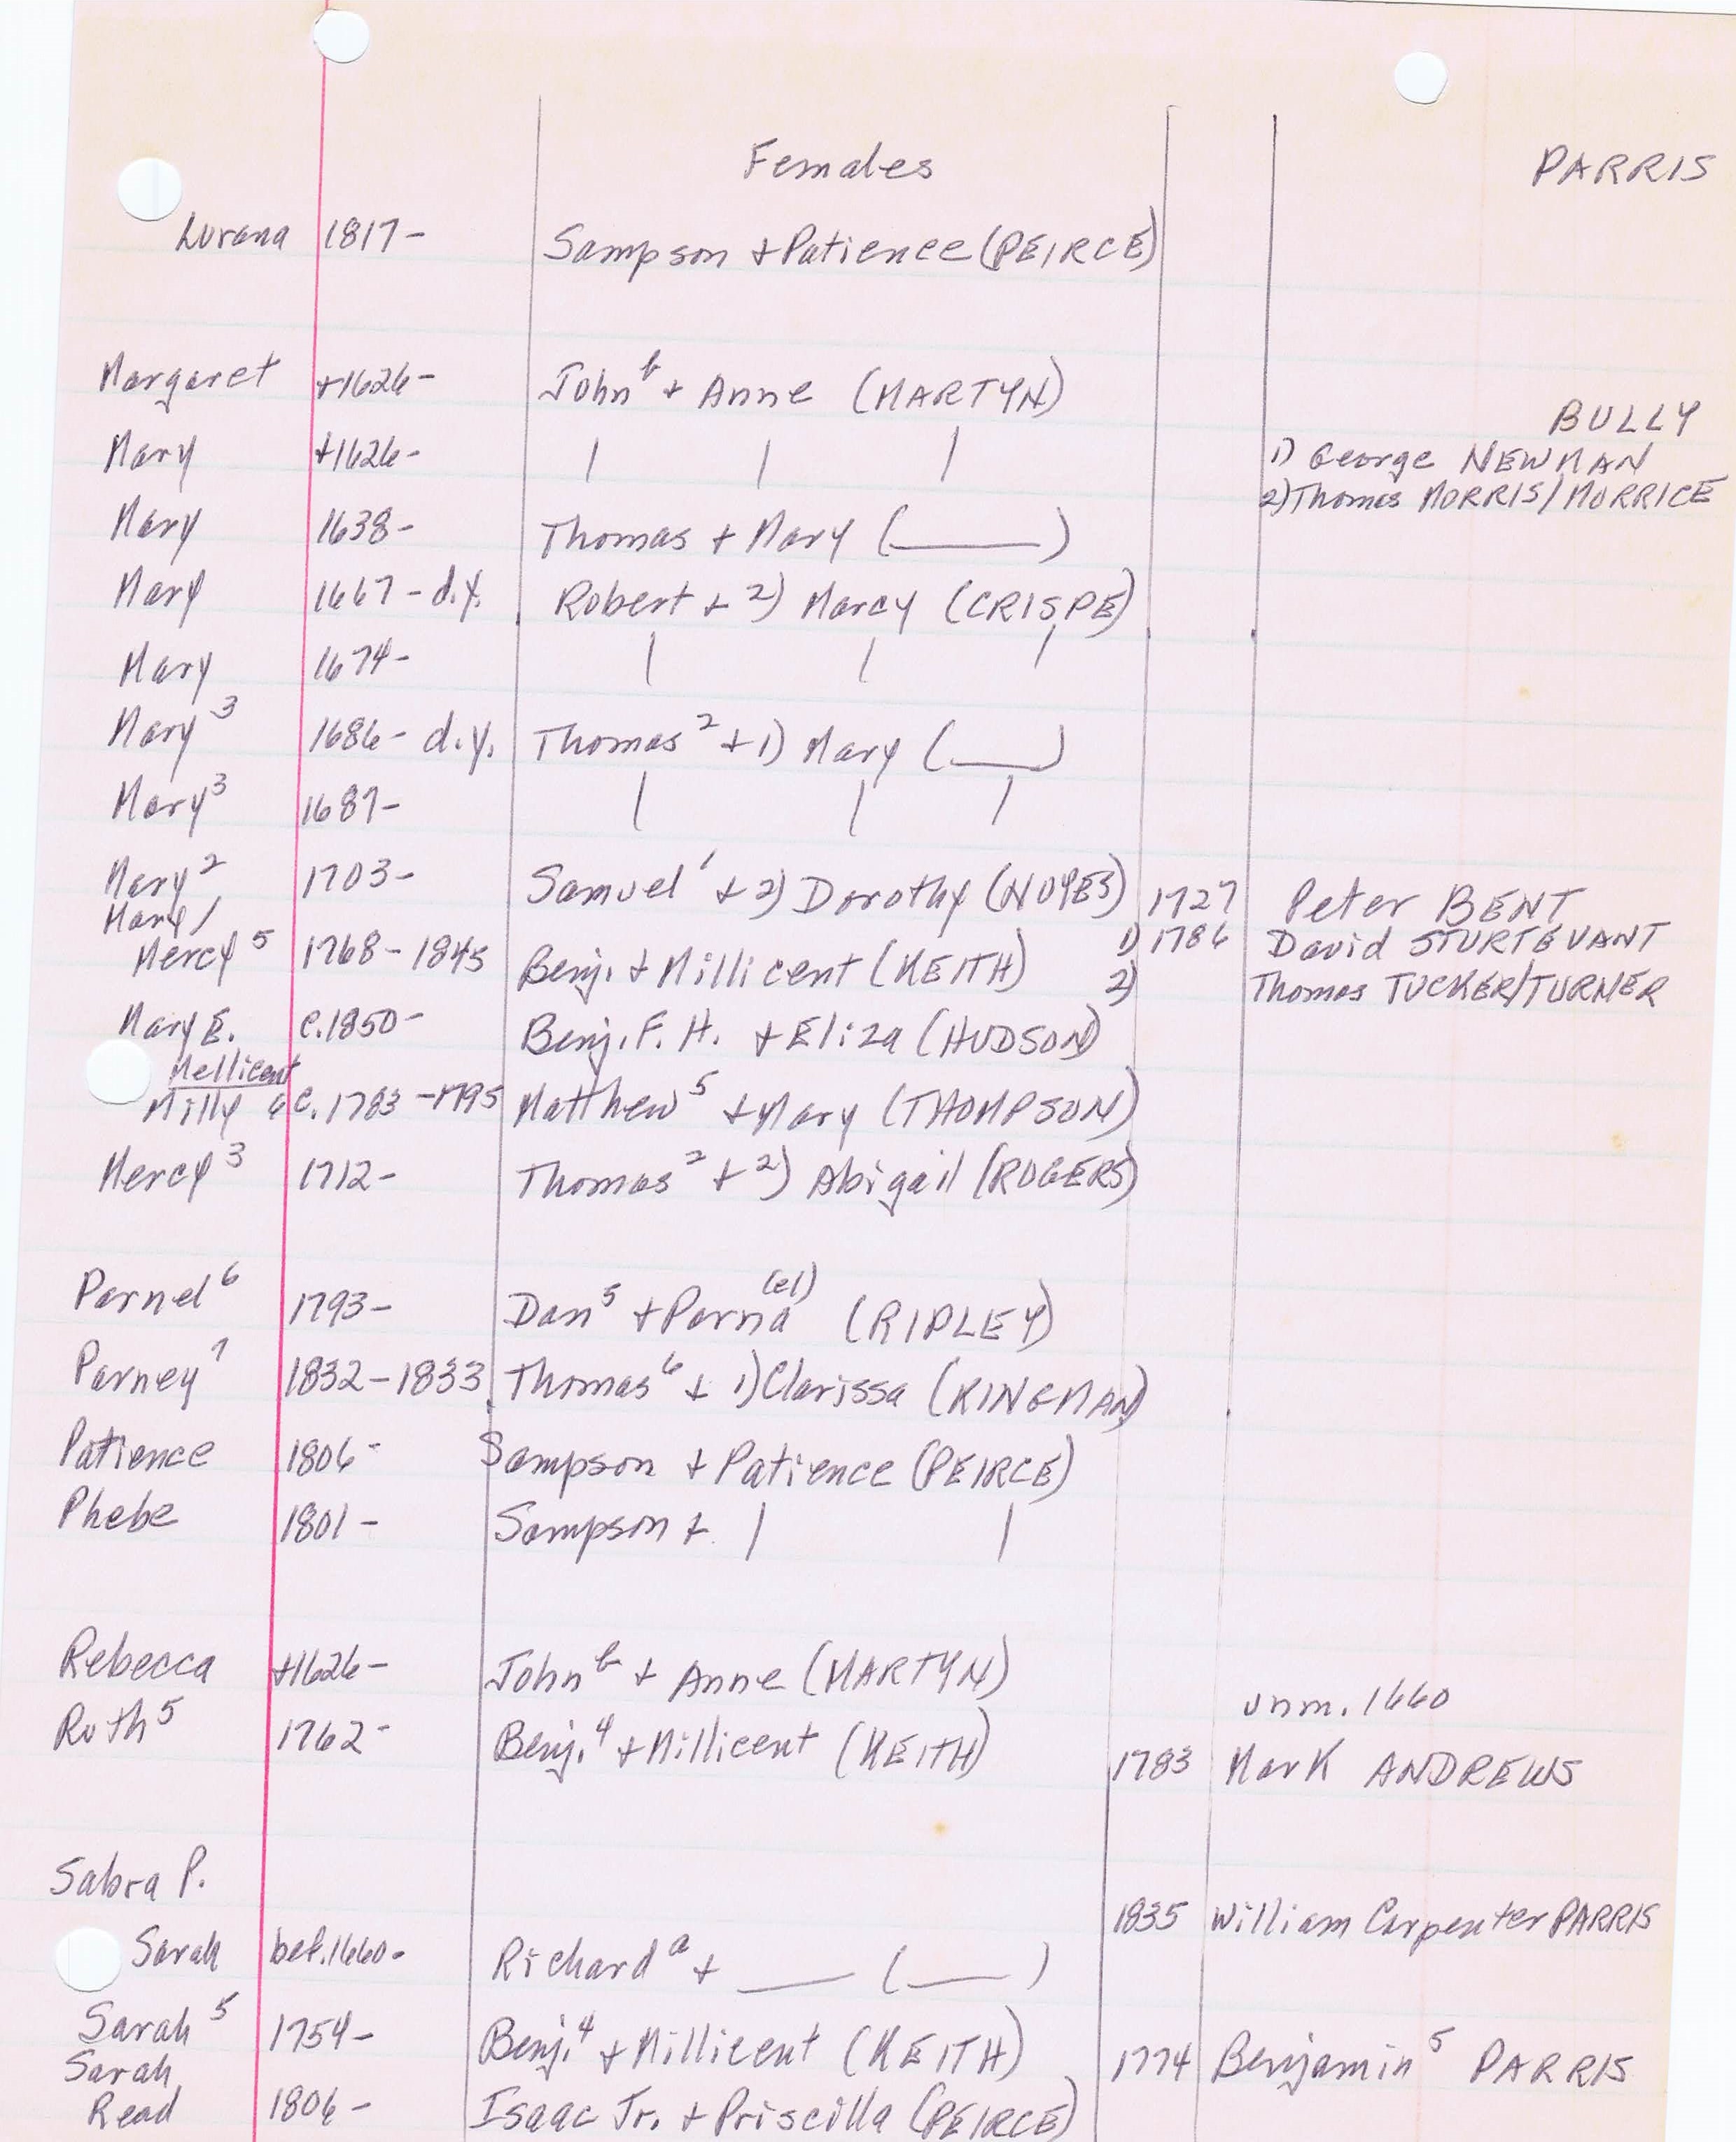 Females PARRIS
Lurana 1817- Sampson + Patience (PEIRCE)
Margaret +1626- John b + Anne (MARTYN)
BULLY
Mary +1626- | | | 1) George NEWMAN
2) Thomas MORRIS/MORRICE
Mary 1638- Thomas + Mary (____)
Mary 1667-d.y. Robert + 2) Marcy (CRISPE)
Mary 1674- | | |
Mary 3 1686- d.y. Thomas 2 + 1) Mary (___)
Mary 3 1687- | | |
Mary 2 1703- Samuel 1 + 2) Dorothy (NOYES) 1727 Peter BENT
Mary/
Mercy 5 1768-1845 Benj. + Millicent (KEITH) 1) 1786 David STURTEVANT
2) Thomas TUCKER/TURNER
Mary E. c.1850- Benj. F. H. + Eliza (HUDSON)
Mellicent
Milly 6 c. 1783-1795 Matthew 5 + Mary (THOMPSON)
Mercy 3 1712- Thomas 2 + 2) Abigail (ROGERS)
Parnel 6 1793- Dan 5 + Parna (el) (RIPLEY)
Parney 7 1832-1833 Thomas 6 + 1) Clarissa (KINGMAN)
Patience 1806- Sampson + Patience (PEIRCE)
Phebe 1801- Sampson + | |
Rebecca +1626- John b + Anne (MARTYN) unm. 1660
Ruth 5 1762- Benj. 4 + Millicent (KEITH) 1783 Mark ANDREWS
Sabra P. 1835 William Carpenter PARRIS
Sarah bef.1660- Richard a + ___ (___)
Sarah 5 1754- Benj. 4 + Millicent (KEITH) 1774 Benjamin 5 PARRIS
Sarah
Read 1806- Isaac Jr. + Priscilla (PEIRCE)